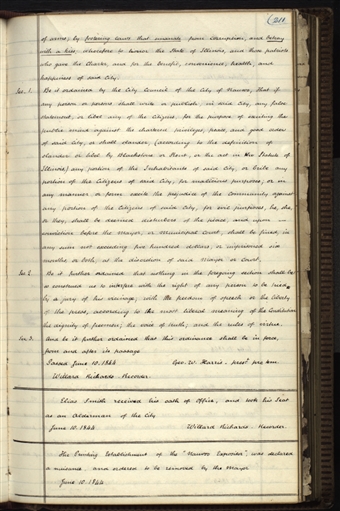 (211
of arms; by fostering laws that emanate from Corruption, and betray
with a kiss, wherefore to honor the State of Illinois, and those patriots
who gave the Charter, and for the benefit, convenience, health, and
happiness of said City;
Sec. 1. Be it ordained by the City Council of the City of Nauvoo, That if
any person or persons shall write or publish, in said City, any false
statement, or libel any of the Citizens, for the purpose of exciting the
public mind against the chartered privileges, peace, and good order
of said City, or shall slander, (according to the definition of
slander or libel by Blackstone or Kent, or the act in the Statute of
Illinois,) any portion of the Inhabitants of said City, or bribe any
portion of the Citizens of said City, for malicious purposes, or in
any manner or form excite the prejudice of the Community against
any portion of the Citizens of said City, for evil purposes, he, she,
or they, shall be deemed disturbers of the peace, and upon
conviction before the Mayor, or Municipal Court, shall be fined, in
any sum not exceeding five hundred dollars, or imprisoned six
months or both, at the discretion of said Mayor or Court.
Sec 2 Be it further ordained that nothing in the foregoing section shall be
so construed as to interfere with the right of any person to be tried
by a jury of his vicinage, with the freedom of speech or the liberty
of the press, according to the most liberal meaning of the Constitution
the dignity of freemen, the voice of truth, and the rules of virtue.
Sec. 3. And be it further ordained that this ordinance shall be in force,
from and after its passage
Passed June 10. 1844 Geo. W. Harris. prest pro tem
Willard Richards. Recorder.
Elias Smith received his oath of Office, and took his Seat
as an Alderman of the City
June 10. 1844 Willard Richards. Recorder.
The Printing Establishment of the "Nauvoo Expositor", was declared
a nuisance, and ordered to be removed by the Mayor
June 10. 1844